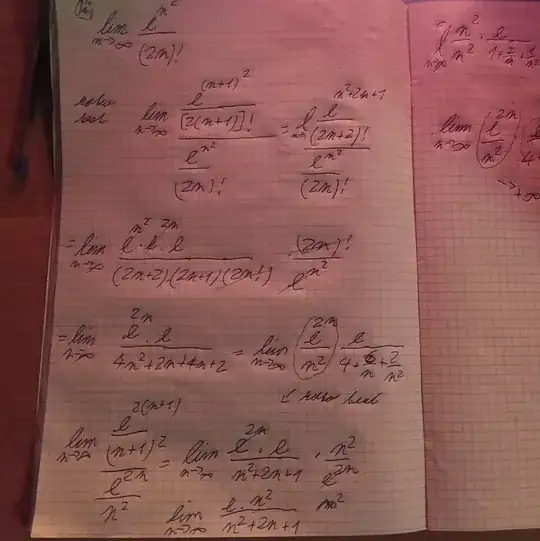 lim n→∞ e^(n^2) / (2n)!
lim n→∞ (e^((n+1)^2) / [2(n+1)]!) / (e^(n^2) / (2n)!) = lim n→∞ (e^(n^2+2n+1) / (2n+2)!) / (e^(n^2) / (2n)!)
= lim n→∞ e^(n^2) · e^(2n) · e / (2n+2)·(2n+1)(2n!) · (2n)! / e^(n^2)
= lim n→∞ e^(2n) · e / 4n^2+2n+4n+2 = lim n→∞ (e^(2n) / n^2) e / 4+6/n+2/n^2
lim n→∞ (e^(2(n+1)) / (n+1)^2) / (e^(2n) / n^2) = lim n→∞ e^(2n) · e / n^2+2n+1 · n^2 / e^(2n)
lim n→∞ e·n^2 / n^2+2n+1
n^2 / n^2 · e / 1+2/n+1/n^2
lim n→∞ (e^(2n) / n^2)
→+∞